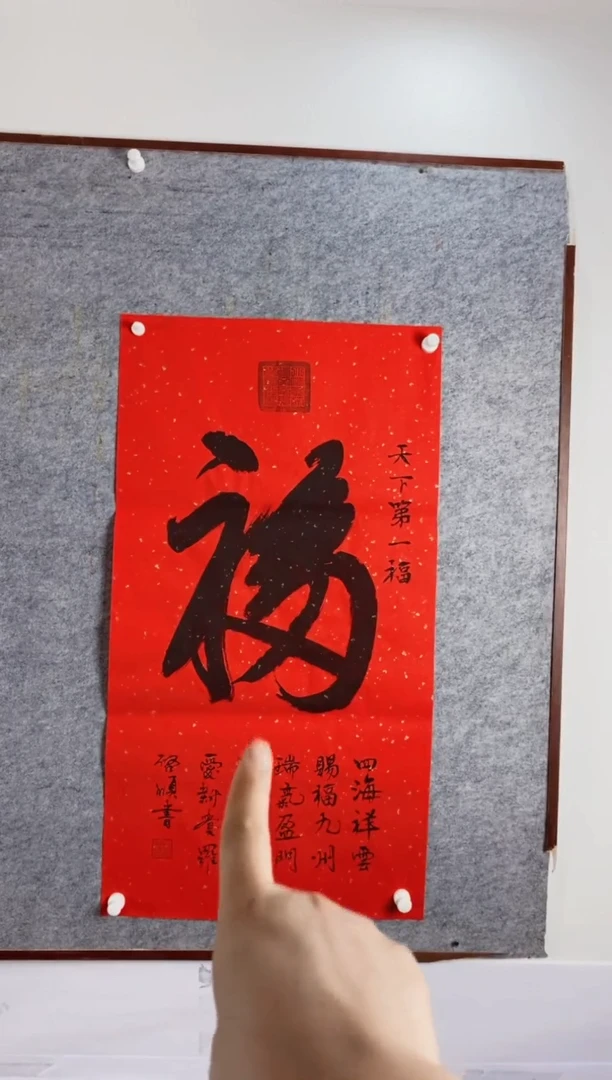 天下第一福
福
四海祥雲
賜福九州
瑞氣盈門
愛新覺羅
啓頫書